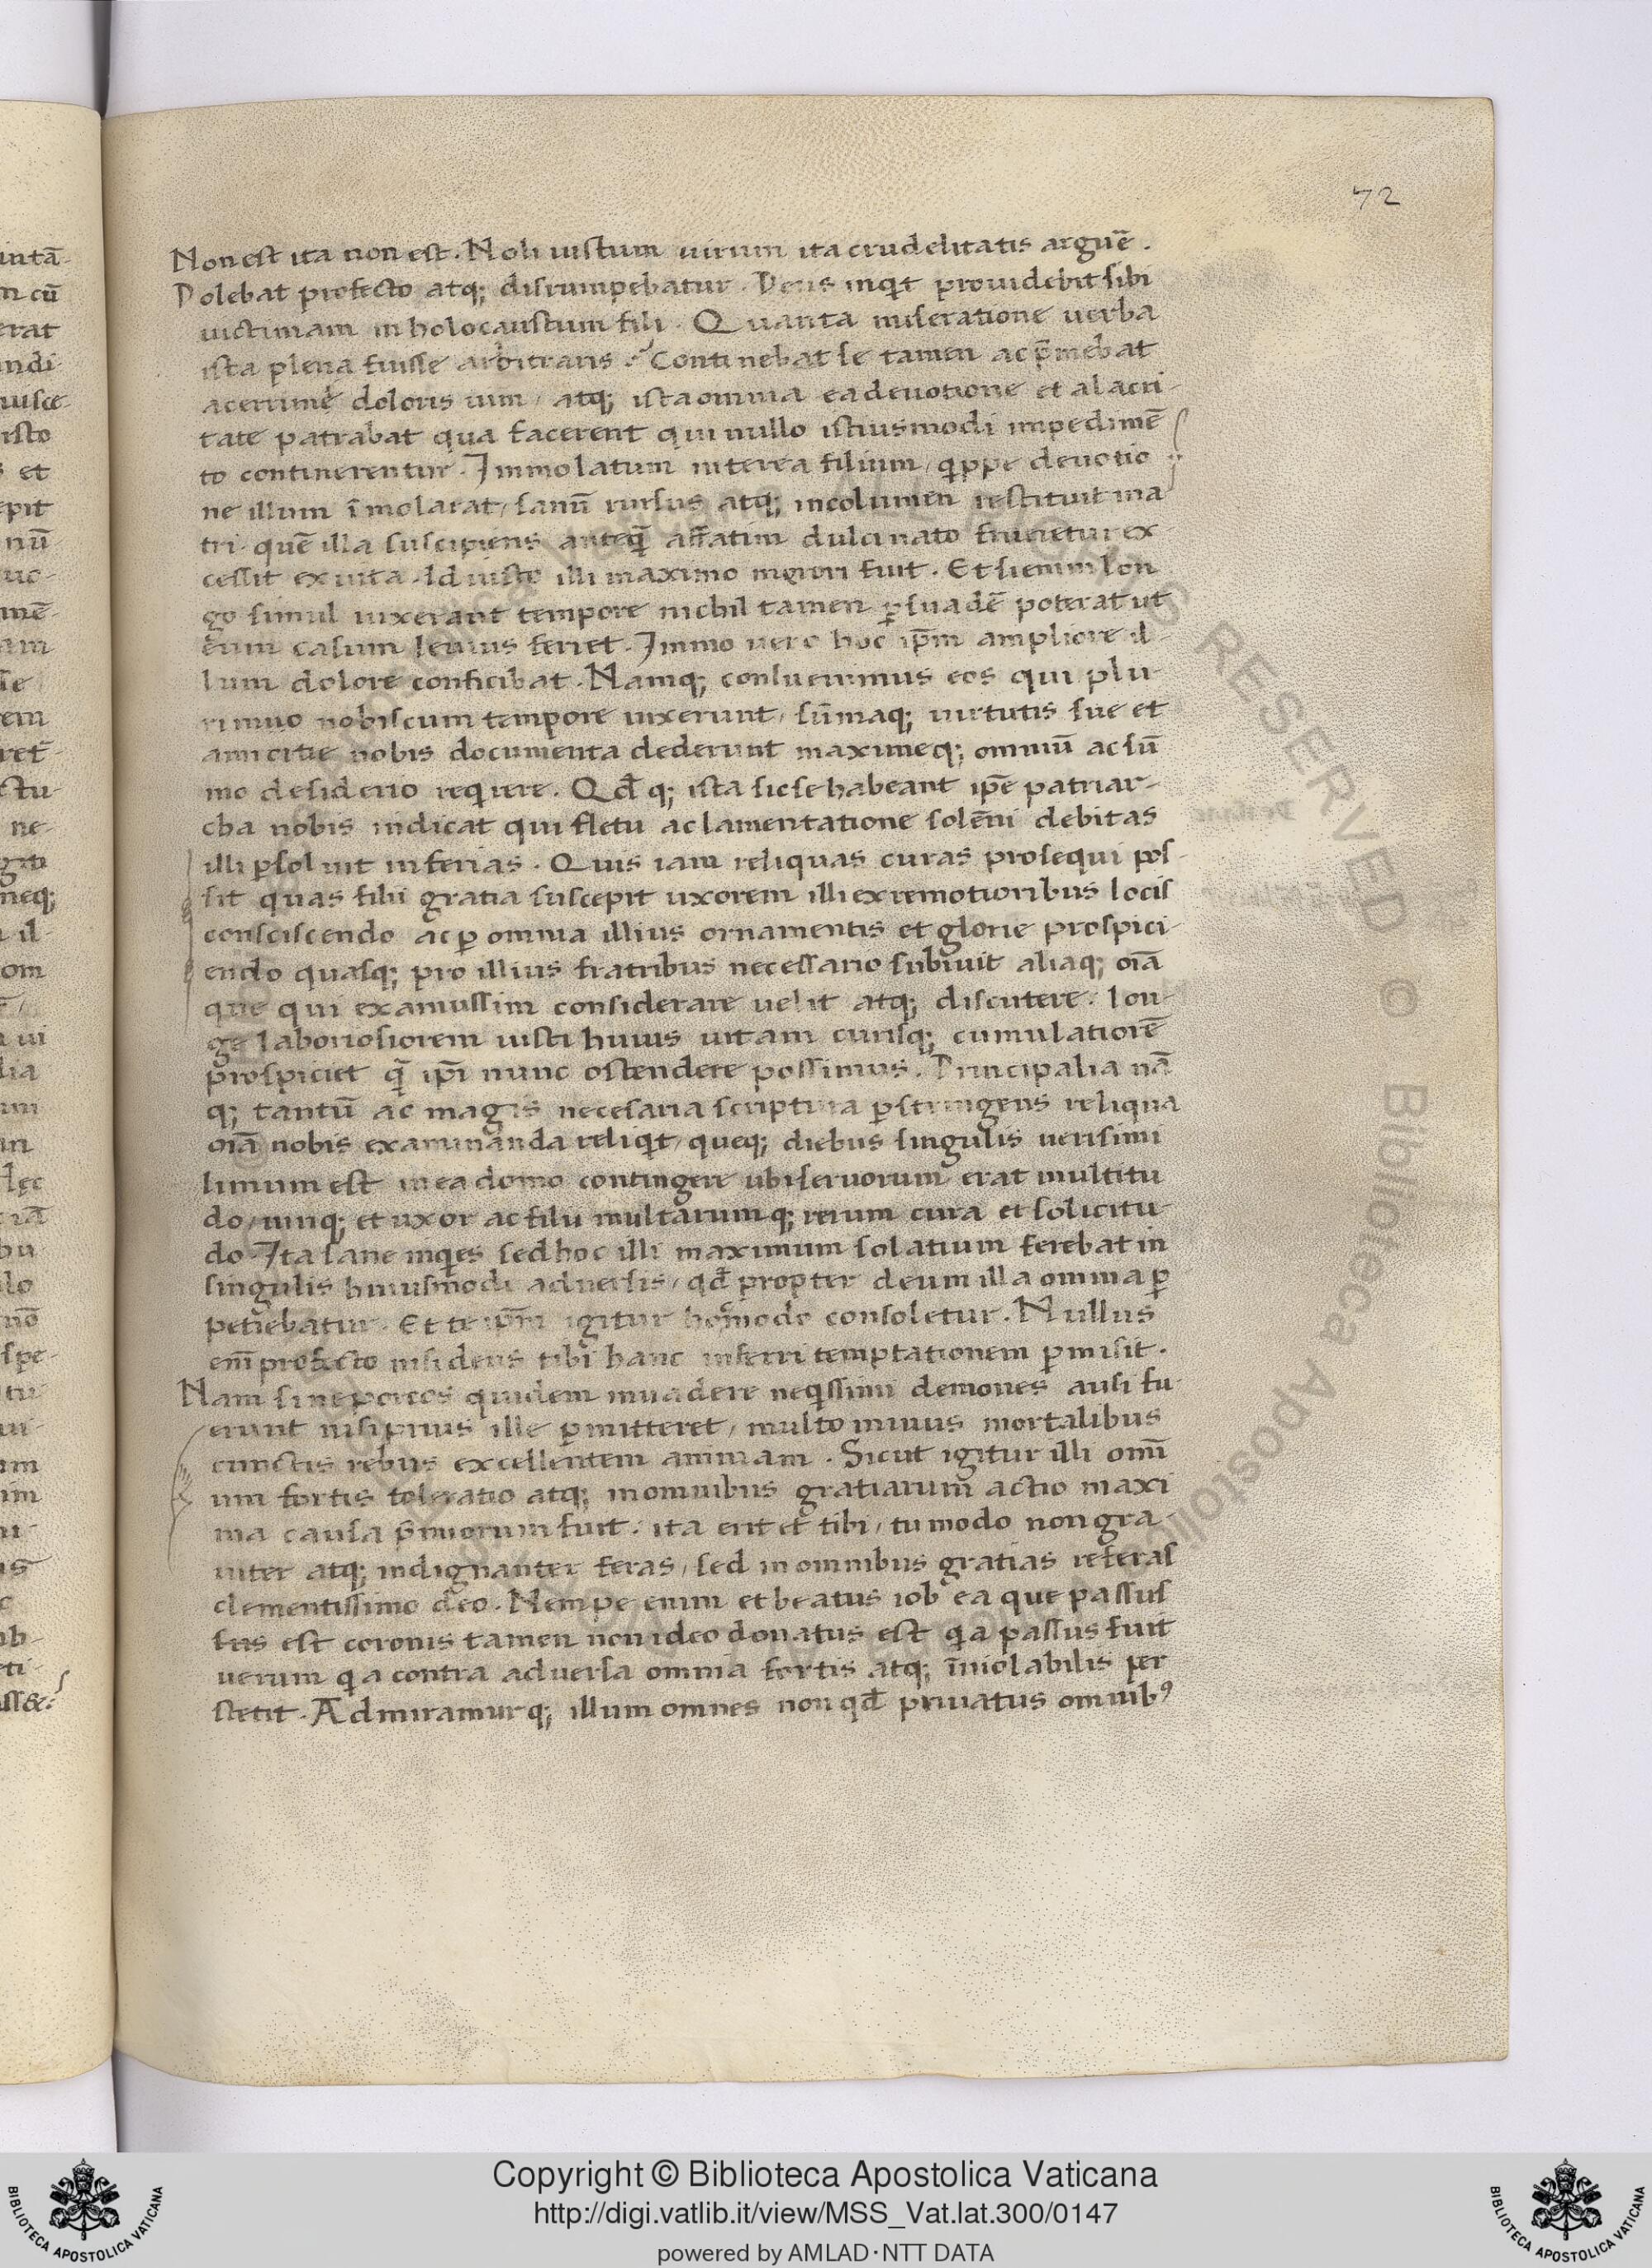 72
Non est ita non est. Noli iustum uirum ita crudelitatis arguē.
Dolebat profecto atq; disrumpebatur. Deus inqt prouidebit sibi
uictimam in holocaustum fili. Quanta miseratione uerba
ista plena fuisse arbitraris? Continebat se tamen ac p̄mebat
acerrime doloris uim, atq; ista omnia ea deuotione et alacri-
tate patrabat qua facerent qui nullo istiusmodi impedimē
to continerentur. Immolatum interea filium, qippe deuotio
ne illum īmolarat, sanū rursus atq; incolumen restituit ma
tri. quē illa suscipiens anteq̄ affatim dulci nato frueretur ex-
cessit ex uita. Id iusto illi maximo merori fuit. Et si enim lon
go simul uixerant tempore nichil tamen ꝑsuadē poterat ut
eum casum leuius ferret. Immo uero hoc ip̄m ampliore il-
lum dolore conficibat. Namq; consueuimus eos qui plu-
rimuo nobiscum tempore uixerunt, sūmaq; uirtutis sue et
amicitie nobis documenta dederunt maximeq; omniū ac sū
mo desiderio reqirere. Qd̄ q; ista sic se habeant ip̄e patriar-
cha nobis indicat qui fletu ac lamentatione solēni debitas
illi ꝑsoluit inferias. Quis iam reliquas curas prosequi pos-
sit quas filii gratia suscepit uxorem illi ex remotioribus locis
consciscendo ac ꝑ omnia illius ornamentis et glorie prospici-
endo quasq; pro illius fratribus necessario subiuit aliaq; oīa
que qui examussim considerare uelit atq; discutere. lon-
ge laboriosiorem iusti huius uitam curisq; cumulatiorē
prospiciet q̄ ip̄i nunc ostendere possimus. Principalia nā
q; tantū ac magis necesaria scriptura ꝑstringens reliqua
oīa nobis examinanda reliqt, queq; diebus singulis uerisimi
limum est in ea domo contingere ubi seruorum erat multitu
do, uirq; et uxor ac filii multarumq; rerum cura et solicitu-
do. Ita sane inqies sed hoc illi maximum solatium ferebat in
singulis huiusmodi aduersis, qd̄ propter deum illa omnia ꝑ
petiebatur. Et te ip̄m igitur hoc modo consoletur. Nullus
enī profecto nisi deus tibi hanc inferri temptationem ꝑmisit.
Nam si ne porcos quidem inuadere neqissimi demones ausi fu-
erunt nisi prius ille ꝑmitteret, multo minus mortalibus
cunctis rebus excellentem animam. Sicut igitur illi omī
um fortis toleratio atq; in omnibus gratiarum actio maxi
ma causa p̄miorum fuit. ita erit et tibi, tu modo non gra-
uiter atq; indignanter feras, sed in omnibus gratias referas
clementissimo deo. Nempe enim et beatus iob ea que passus
sus est coronis tamen non ideo donatus est qia passus fuit
uerum qia contra aduersa omnia fortis atq; īuiolabilis per
stetit. Admiramurq; illum omnes non qd̄ priuatus omnibꝰ
Copyright © Biblioteca Apostolica Vaticana
http://digi.vatlib.it/view/MSS_Vat.lat.300/0147
powered by AMLAD·NTT DATA